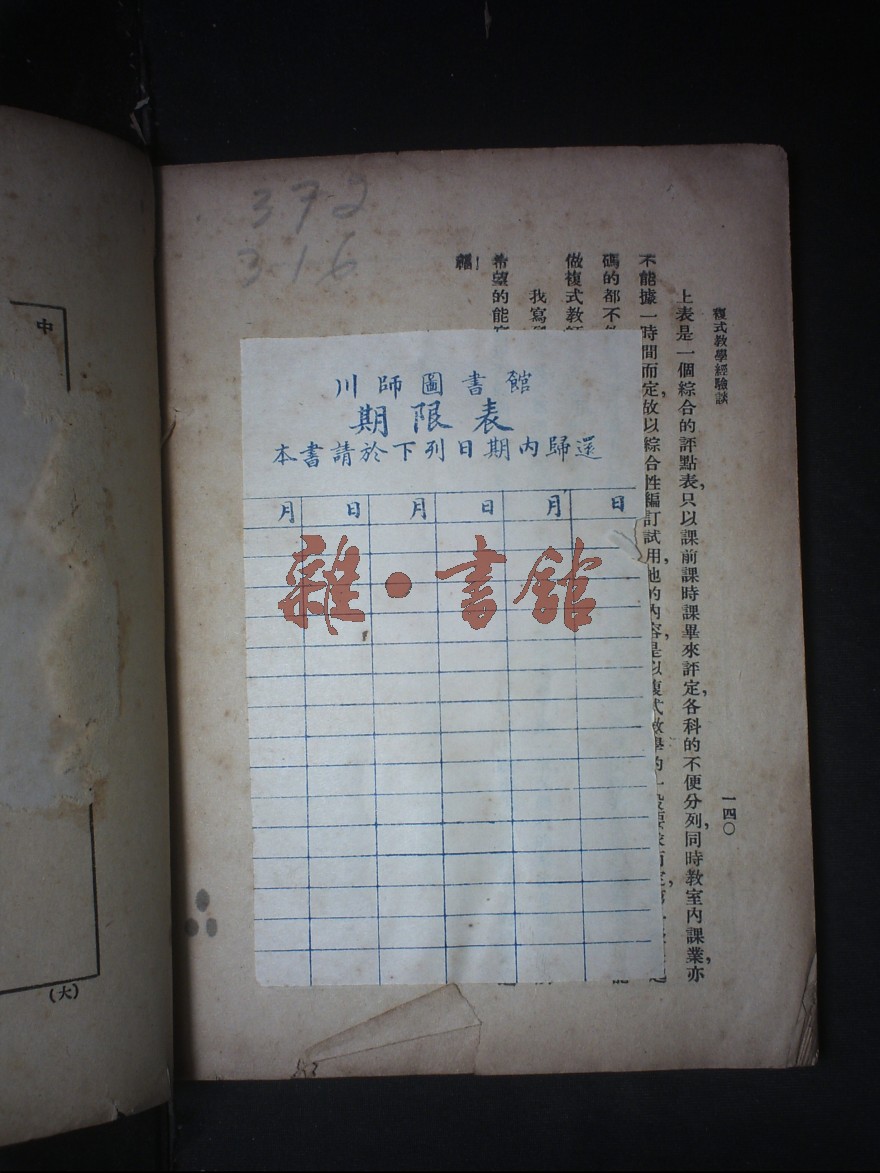 複式教學經驗談
一四〇
上表是一個綜合的評點表，只以課前課時課畢來評定，各科的不便分列，同時教室內課業，亦
不能據一時間而定，故以綜合性編訂試用，他的內容，是以複式教學的一般要求而定，
碼的都不
做複式教師
我寫
希望的能
372
316
川師圖書館
期限表
本書請於下列日期內歸還
月 日 月 日 月 日
雜·書館
中
(大)